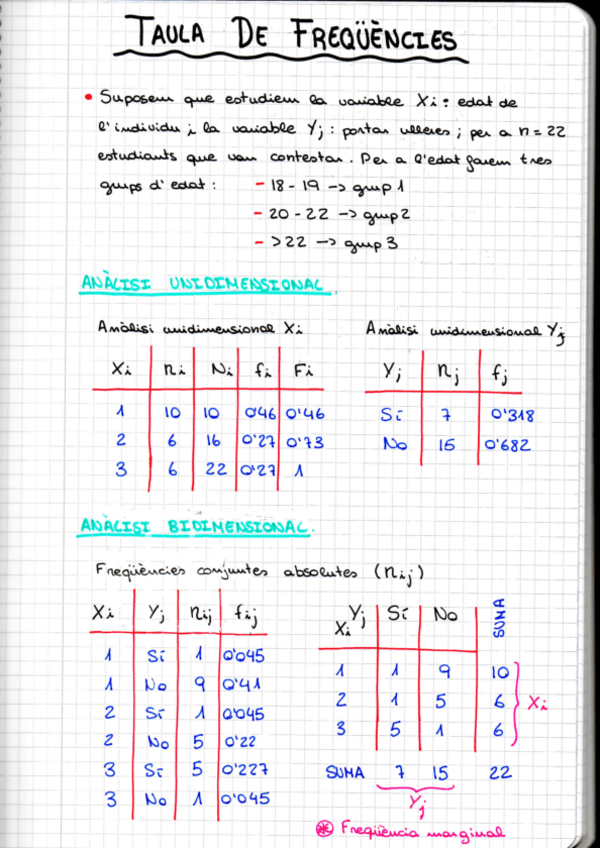 TAULA DE FREQÜÈNCIES
• Suposem que estudiem la variable Xi: edat de
l'individu i la variable Yj: portar ulleres; per a n = 22
estudiants que van contestar. Per a l'edat farem tres
grups d'edat: - 18 - 19 -> grup 1
- 20 - 22 -> grup 2
- > 22 -> grup 3
ANÀLISI UNIDIMENSIONAL.
Anàlisi unidimensional Xi
Xi ni Ni fi Fi
1 10 10 0'46 0'46
2 6 16 0'27 0'73
3 6 22 0'27 1
Anàlisi unidimensional Yj
Yj nj fj
Sí 7 0'318
No 15 0'682
ANÀLISI BIDIMENSIONAL.
Freqüències conjuntes absolutes (nij)
Xi Yj nij fij
1 Sí 1 0'045
1 No 9 0'41
2 Sí 1 0'045
2 No 5 0'22
3 Sí 5 0'227
3 No 1 0'045
Xi Yj Sí No SUMA
1 1 9 10
2 1 5 6 Xi
3 5 1 6
SUMA 7 15 22
Yj
* Freqüència marginal